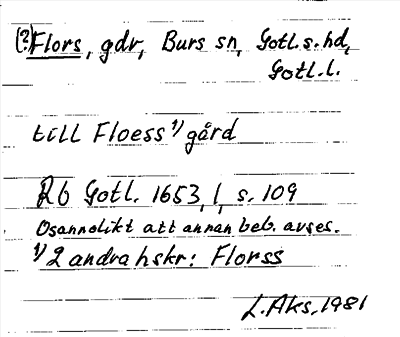 (?) Flors, gdr, Burs sn, Gotl. s. hd,
Gotl. l.
till Floess 1) gård
Rb Gotl. 1653, 1, s. 109
Osannolikt att annan beb. avses.
1) 2 andra hskr: Florss
L. Aks. 1981